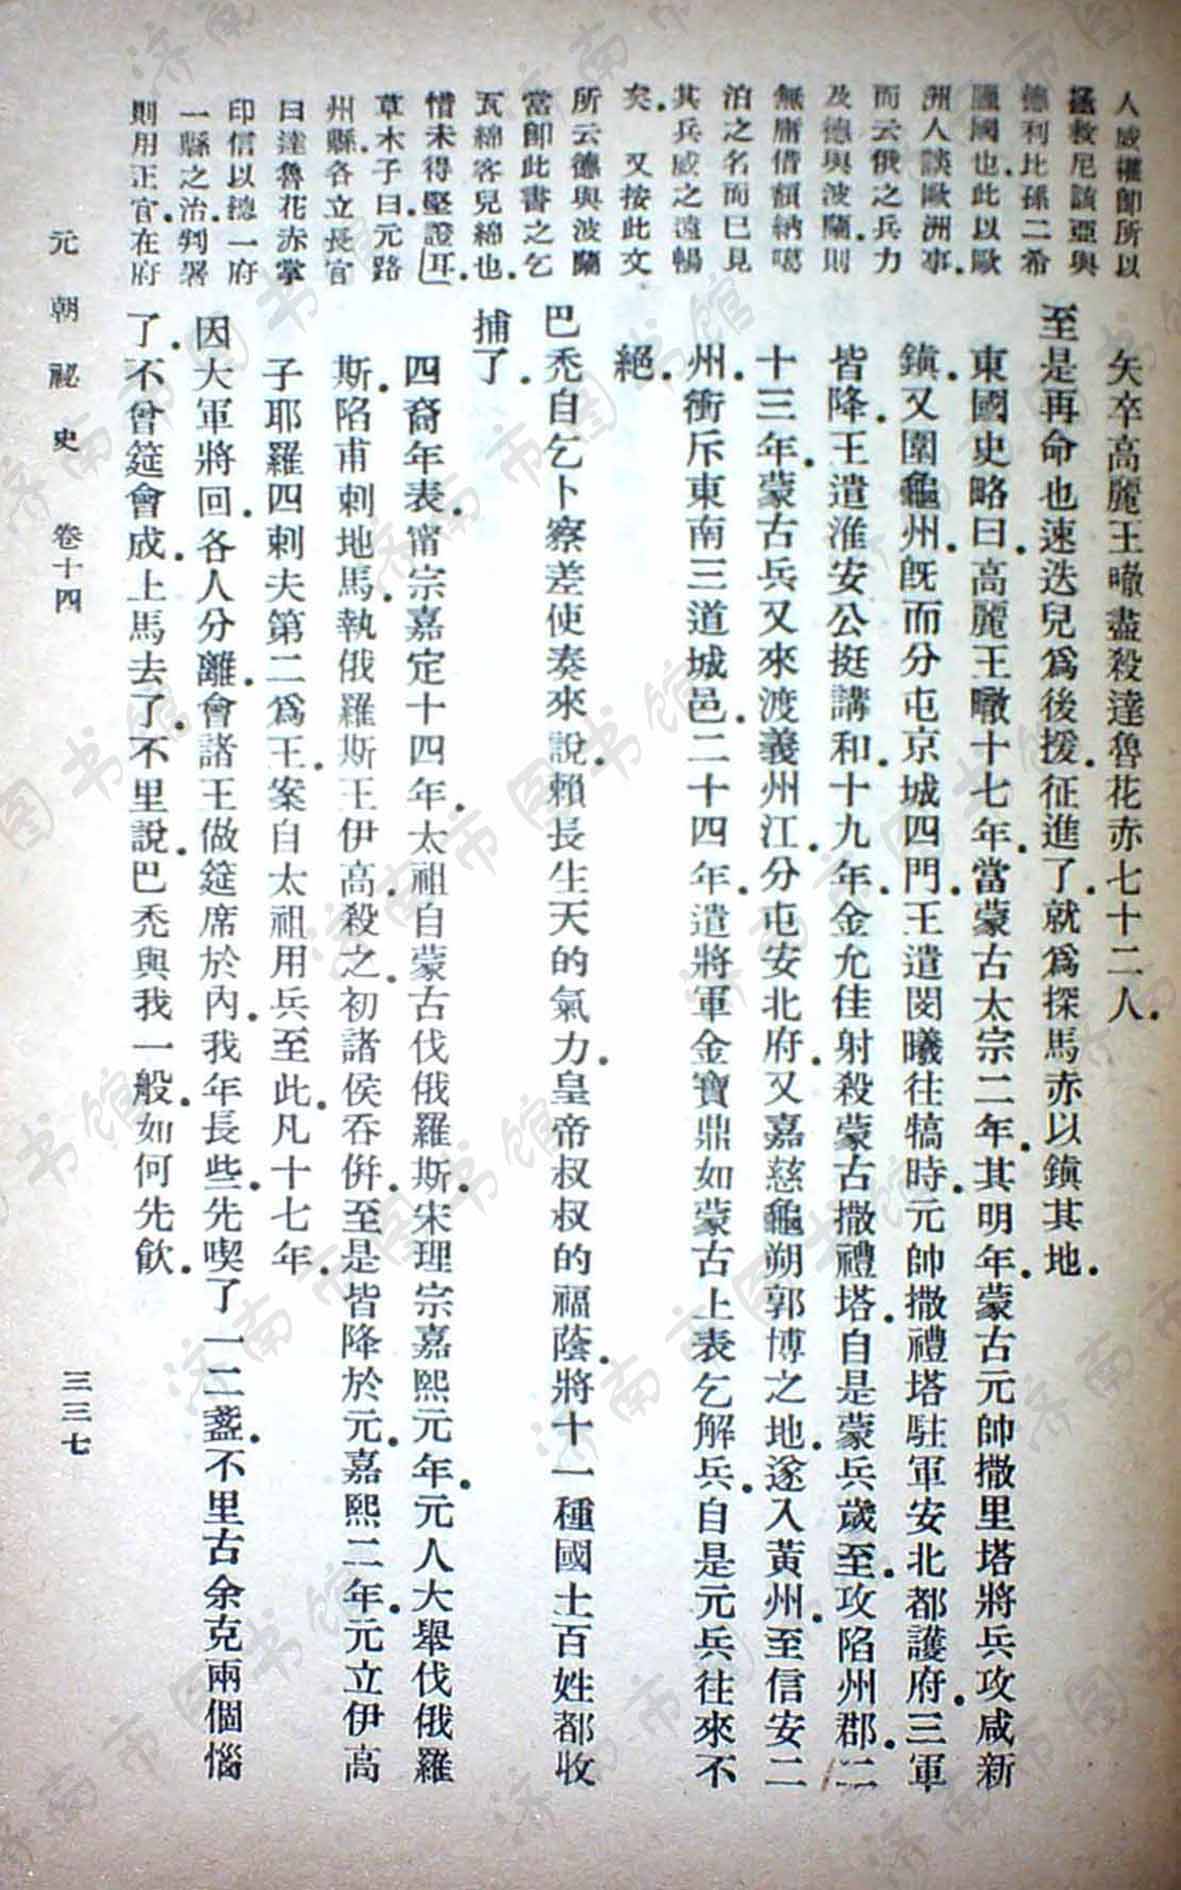 人威權卽所以
拯救尼該亞與
德利比孫二希
臘國也此以歐
洲人談歐洲事
而云俄之兵力
及德與波蘭則
無庸借額納噶
泊之名而已見
其兵威之遠暢
矣 又按此文
所云德與波蘭
當卽此書之乞
瓦綿客兒綿也
惜未得堅證耳
草木子曰元路
州縣各立長官
曰達魯花赤掌
印信以總一府
一縣之治判署
則用正官在府
矢卒高麗王㬚盡殺達魯花赤七十二人
至是再命也速迭兒爲後援征進了就爲探馬赤以鎮其地
東國史略曰高麗王㬚十七年當蒙古太宗二年其明年蒙古元帥撒里塔將兵攻咸新
鎮又圍龜州旣而分屯京城四門王遣閔曦往犒時元帥撒禮塔駐軍安北都護府三軍
皆降王遣淮安公挺講和十九年金允佳射殺蒙古撒禮塔自是蒙兵歲至攻陷州郡二
十三年蒙古兵又來渡義州江分屯安北府又嘉慈龜朔郭博之地遂入黃州至信安二
州衝斥東南三道城邑二十四年遣將軍金寶鼎如蒙古上表乞解兵自是元兵往來不
絕
巴禿自乞卜察差使奏來說賴長生天的氣力皇帝叔叔的福蔭將十一種國土百姓都收
捕了
四裔年表甯宗嘉定十四年太祖自蒙古伐俄羅斯宋理宗嘉熙元年元人大舉伐俄羅
斯陷甫剌地馬執俄羅斯王伊高殺之初諸侯吞併至是皆降於元嘉熙二年元立伊高
子耶羅四剌夫第二爲王案自太祖用兵至此凡十七年
因大軍將回各人分離會諸王做筵席於內我年長些先喫了一二盞不里古余克兩個惱
了不曾筵會成上馬去了不里說巴禿與我一般如何先飲
元朝祕史 卷十四 三三七
济南市图书馆